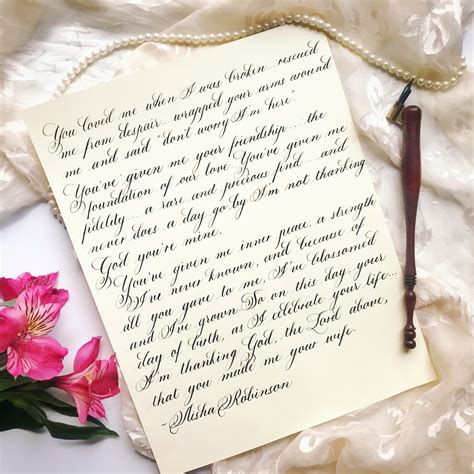 You loved me when I was broken... rescued
me from despair... wrapped your arms around
me and said "don't worry I'm here"
You've given me your friendship.... the
foundation of our love. You've given me
fidelity.... a rare and precious find.... and
never does a day go by I'm not thanking
God you're mine.
You've given me inner peace, a strength
I've never known, and because of
all you gave to me, I've blossomed
and I've grown. So on this day, your
day of birth, as I celebrate your life...
I'm thanking God, the Lord above,
that you made me your wife.
-Aisha Robinson